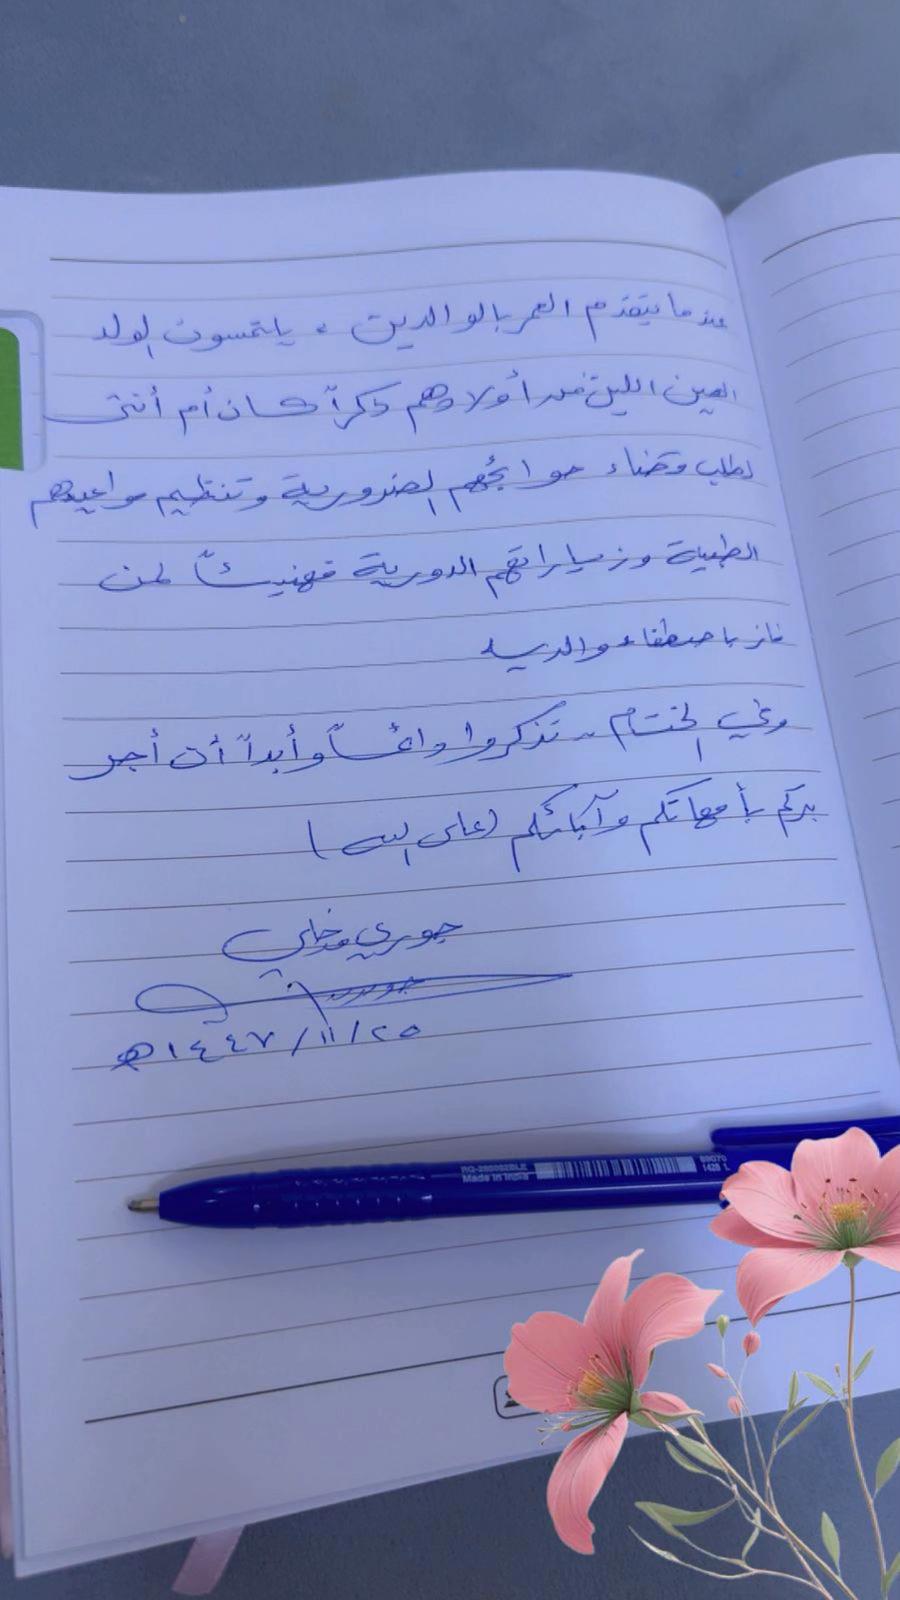 عندما يتقدم العمر بالوالدين ، يلتمسون الولد
الهين اللين من أولادهم ذكراً كان أم أنثى
لطلب وقضاء حوائجهم الضرورية وتنظيم مواعيدهم
الطبية وزياراتهم الدورية فهنيئاً لمن
فاز باصطفاء والديه
وفي الختام .. تذكروا دائماً وأبداً أن أجر
بركم بأمهاتكم وآبائكم (على الله)
جوري مدخلي
٢٥/١١/١٤٤٧هـ
RQ-280092BLE
Made in India